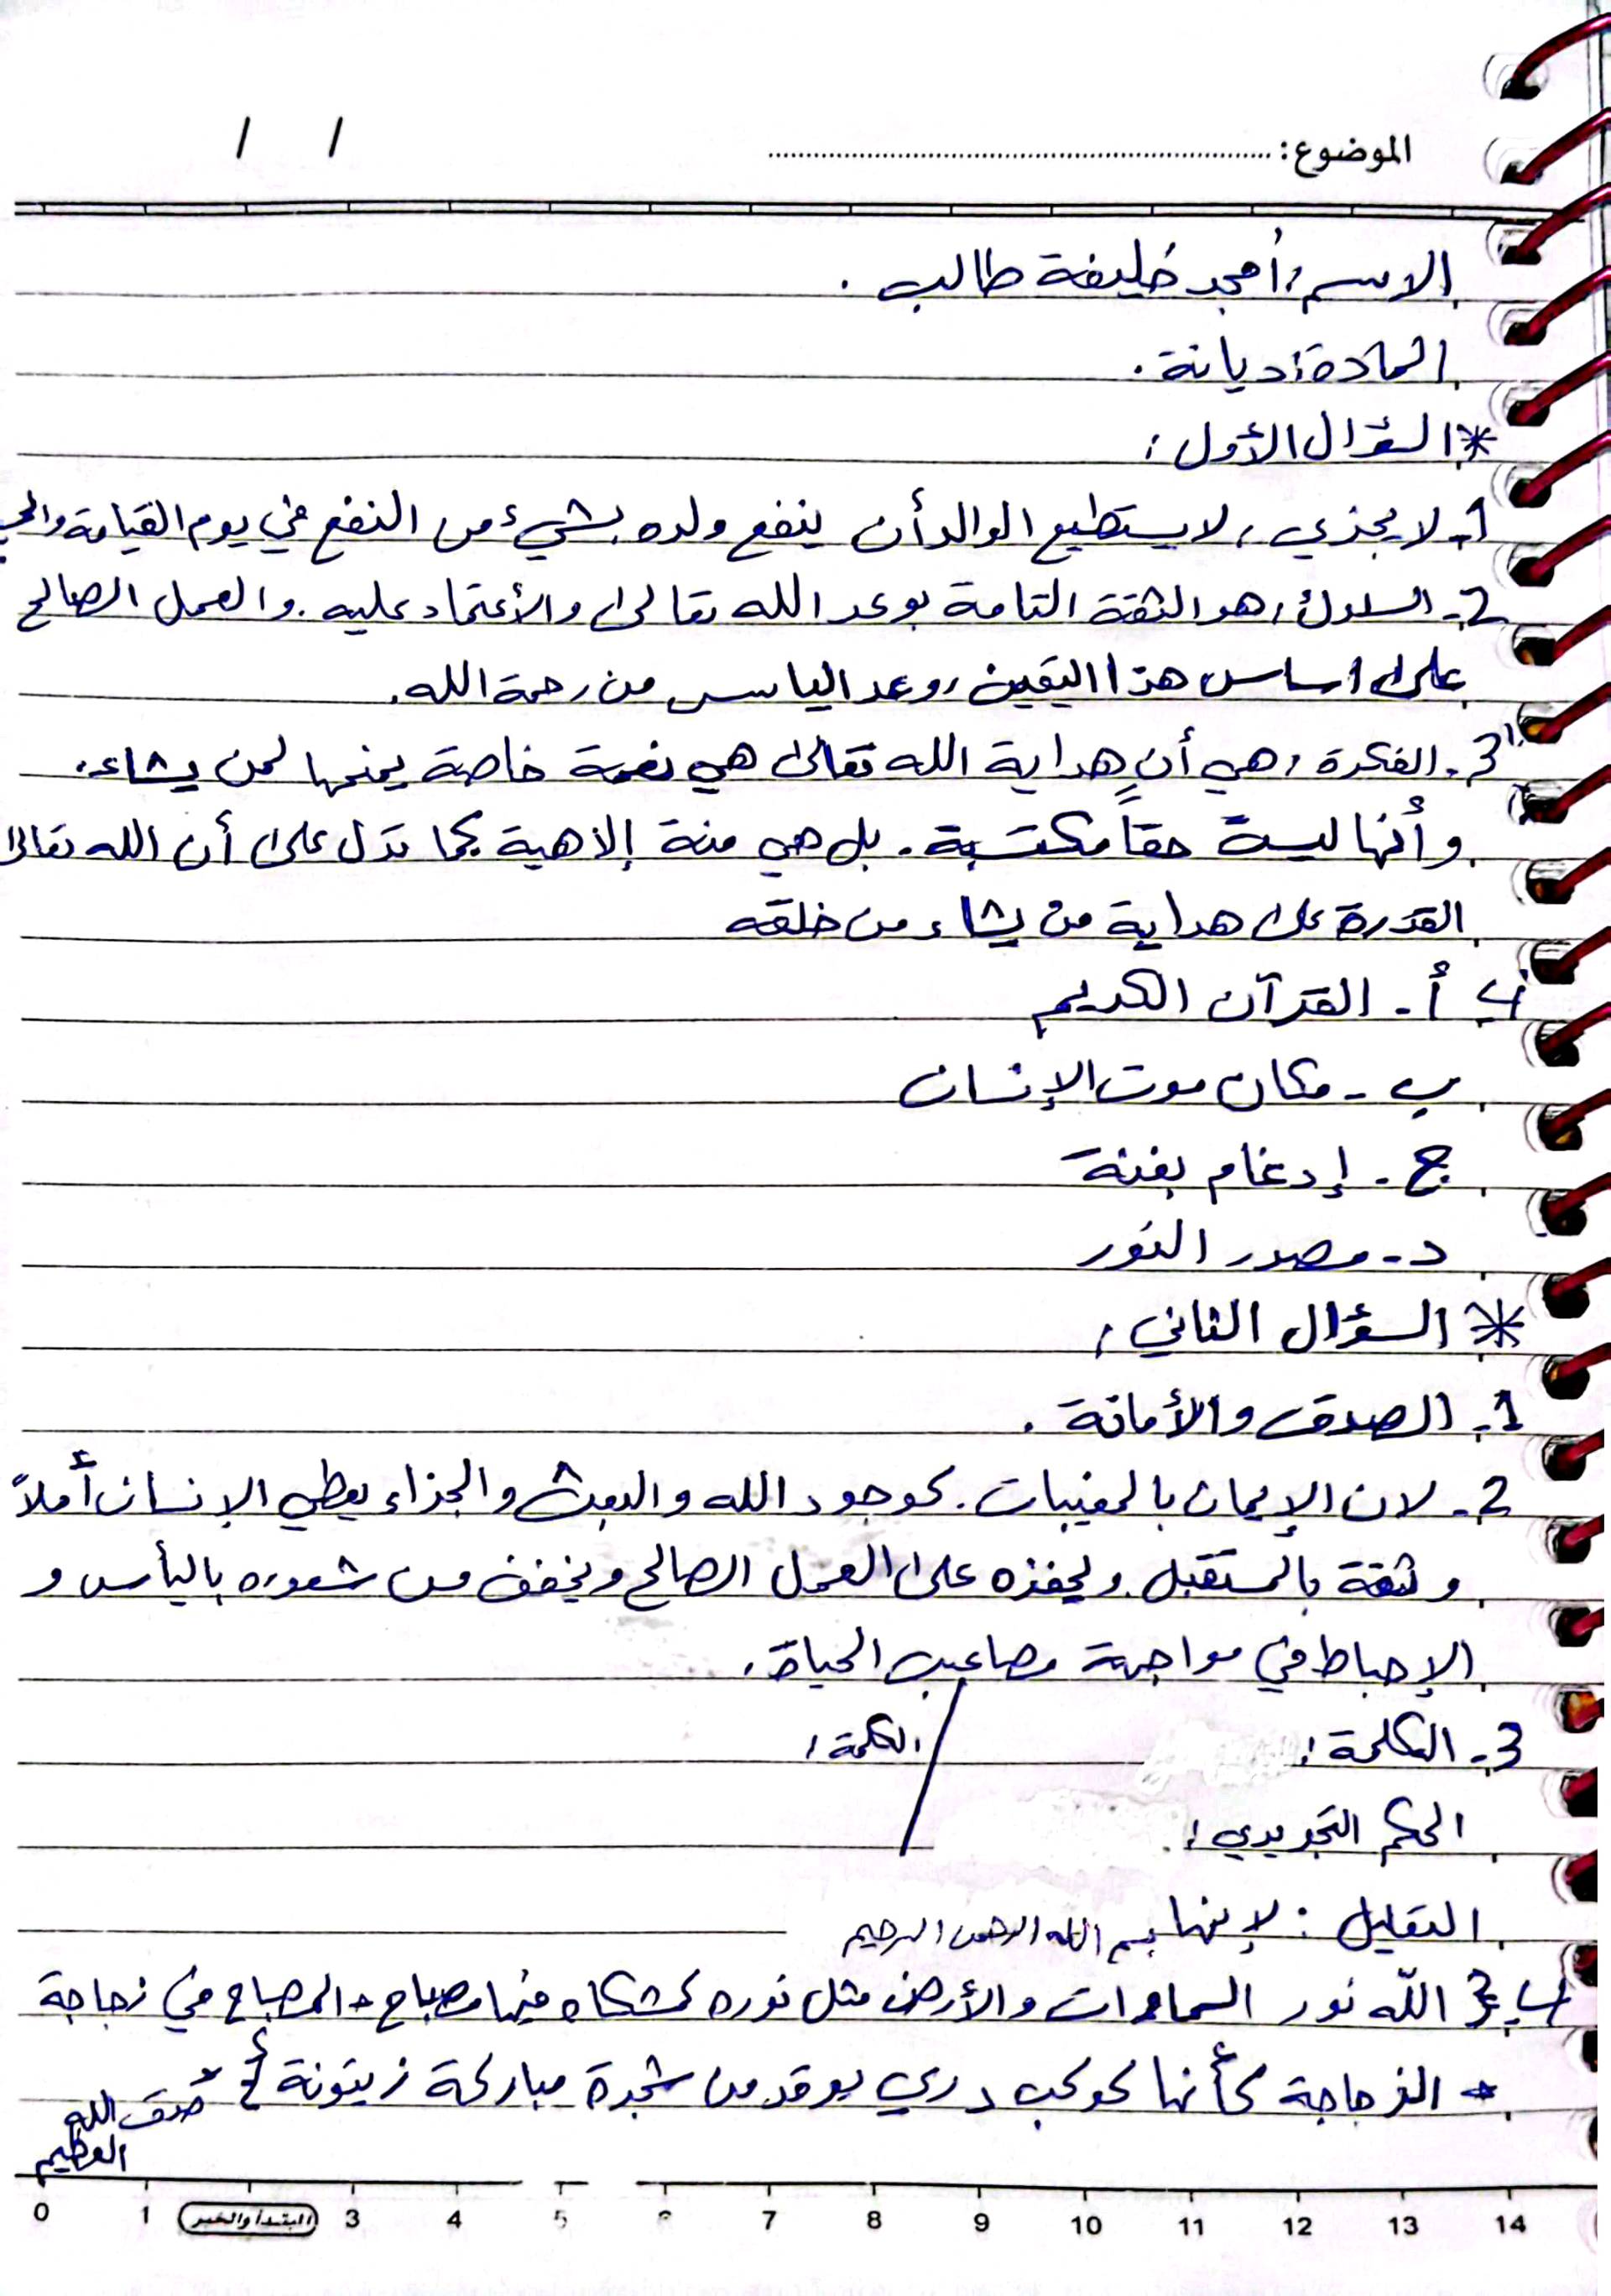 الموضوع: / /
الاسم: أمجد خليفة طالب.
المادة: ديانة.
* السؤال الأول:
1- لا يجزي: لا يستطيع الوالد أن ينفع ولده بشيء من النفع في يوم القيامة
2- السلوك: هو الثقة التامة بوعد الله تعالى والأعتماد عليه. والعمل الصالح
على اساس هذا اليقين، وعد الياس من رحمة الله.
3. الفكرة: هي أن هداية الله تعالى هي نعمة خاصة يمنحها لمن يشاء.
وأنها ليسة حقاً مكتسبة. بل هي منة إلاهية كما تدل على أن الله تعالى
القدرة على هداية من يشاء من خلقه
4- أ- القرآن الكريم
ب - مكان موت الإنسان
ج - إدغام بغنة
د - مصدر النور
* السؤال الثاني:
1- الصدق والأمانة.
2- لان الإيمان بالمغيبات. كوجود الله والبعث والجزاء يعطي الإنسان أملاً
وثقة بالمستقبل. ويحفزه على العمل الصالح ويخفف من شعوره باليأس و
الإحباط في مواجهة مصاعب الحياة.
3- الكلمة: / الكلمة:
الحكم التجويدي:
التعليل: لإنها بسم الله الرحمن الرحيم
4- { الله نور السماوات والأرض مثل نوره كمشكاه فيها مصباح - المصباح في زجاجة
- الزجاجة كأنها كوكب دري يوقد من شجرة مباركة زيتونة } صدق الله
العظيم
0 1 المبتدأ والخبر 3 4 5 6 7 8 9 10 11 12 13 14